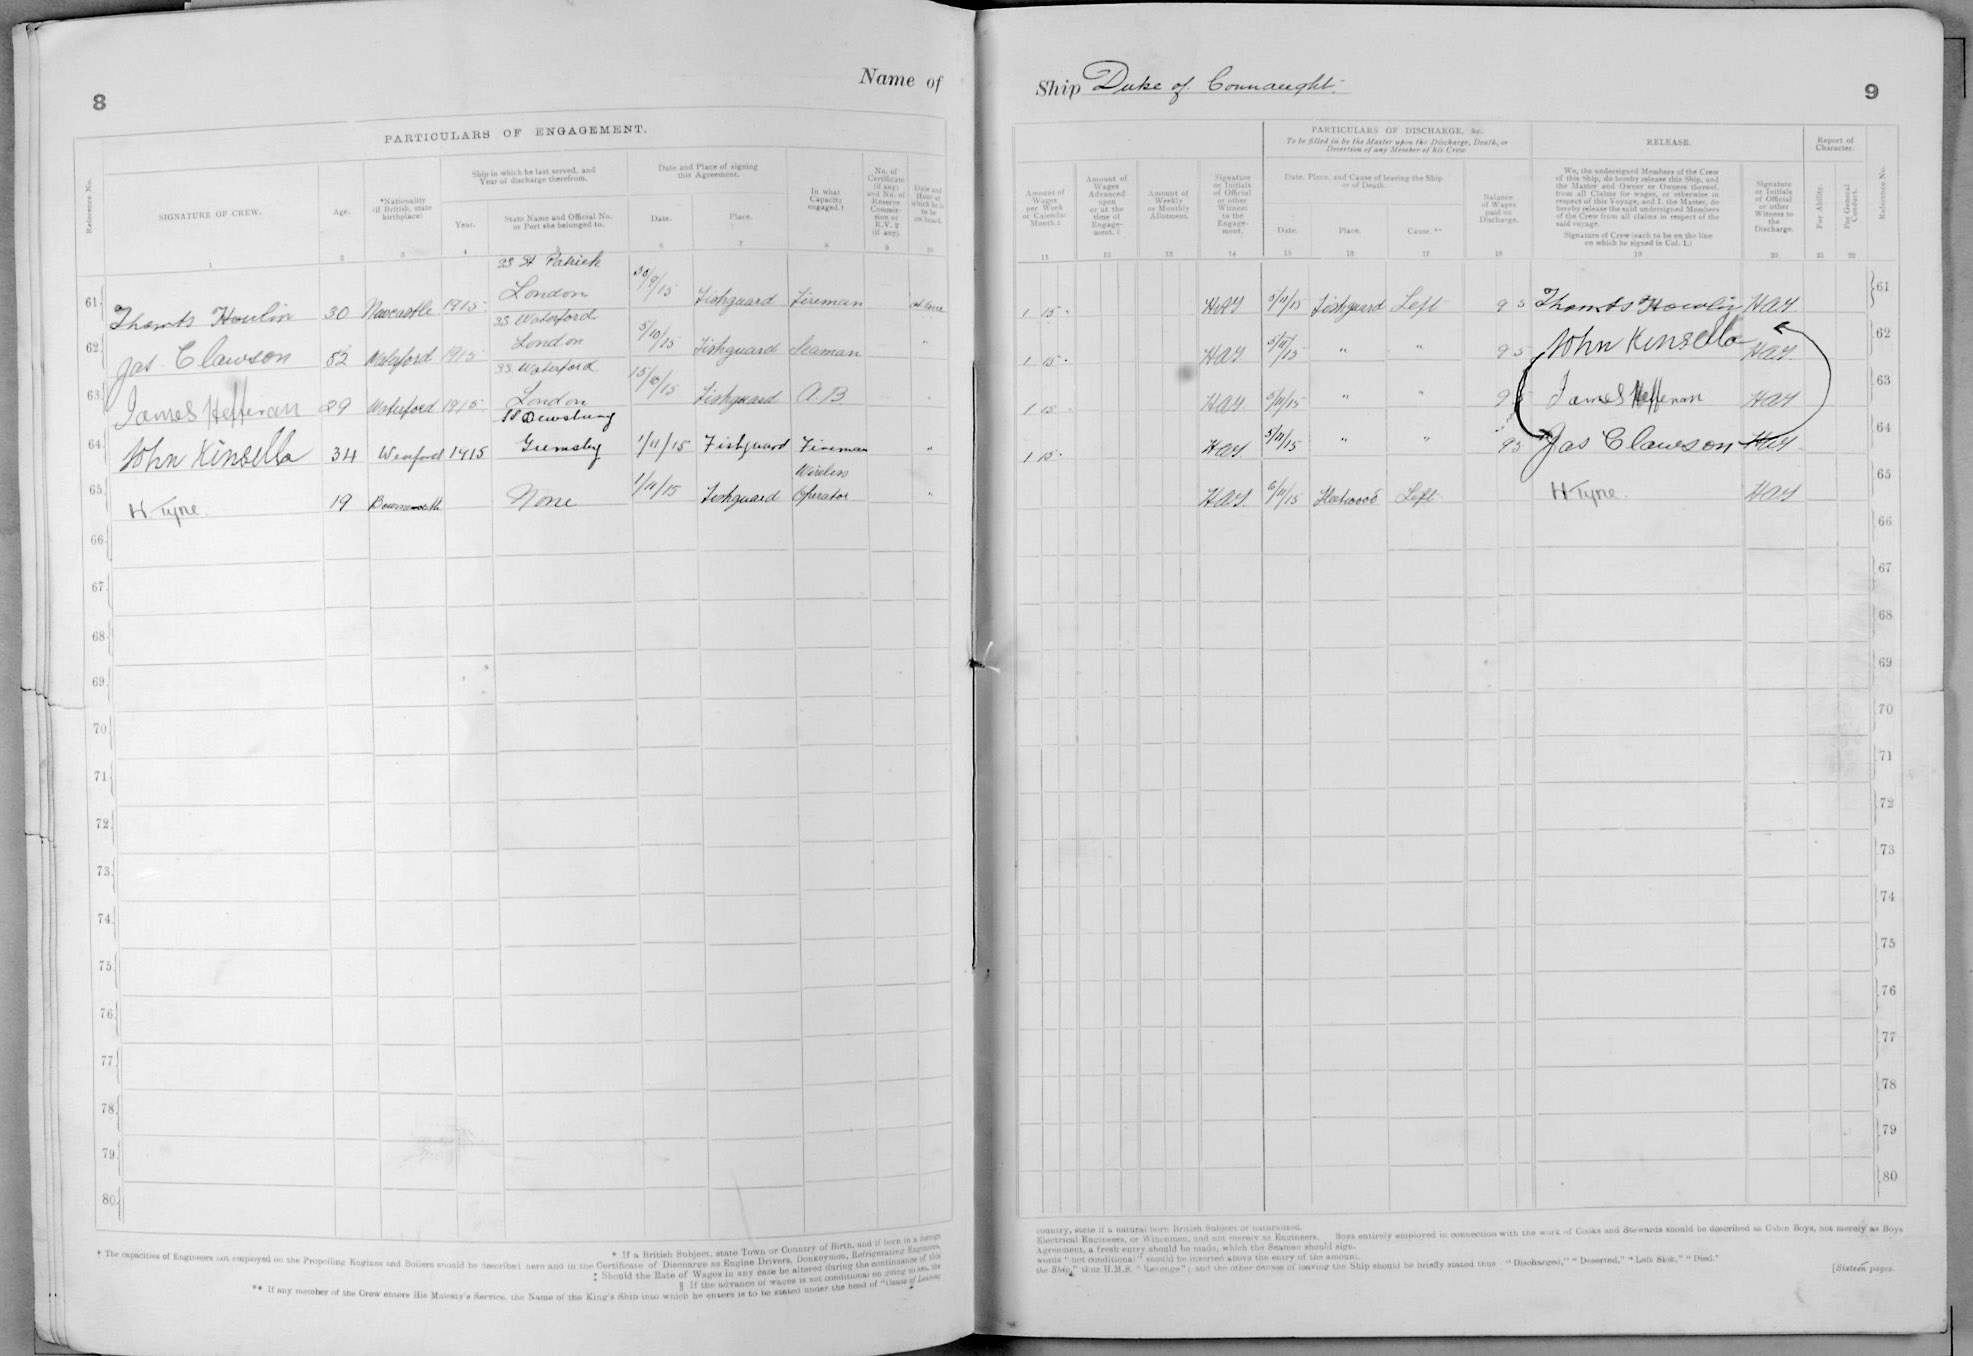 8
Name of
PARTICULARS OF ENGAGEMENT.
Reference No.
SIGNATURE OF CREW.
Age.
*Nationality
(if British, state
birthplace)
Ship in which he last served, and
Year of discharge therefrom.
Year.
State Name and Official No.
or Port she belonged to.
Date and Place of signing
this Agreement.
Date.
Place.
In what
Capacity
engaged.†
No. of
Certificate
(if any)
and No. of
Reserve
Commis-
sion or
R.V. 2
(if any).
Date and
Hour at
which he is
to be
on board.
1 2 3 4 5 6 7 8 9 10
SS St Patrick
61 Thomas Howlin 30 Newcastle 1915 London 30/9/15 Fishguard Fireman at once
SS Waterford
62 Jas Clawson 52 Waterford 1915 London 5/10/15 Fishguard Seaman "
SS Waterford
63 James Heffernan 29 Waterford 1915 London 15/10/15 Fishguard A.B.
SS Dewsbury
64 John Kinsella 34 Wexford 1915 Grimsby 1/11/15 Fishguard Fireman "
65 H Tyne 19 Bournemouth None 1/11/15 Fishguard Wireless Operator "
66
67
68
69
70
71
72
73
74
75
76
77
78
79
80
* If a British Subject, state Town or Country of Birth, and if born in a foreign
† The capacities of Engineers not employed on the Propelling Engines and Boilers should be described here and in the Certificate of Discharge as Engine Drivers, Donkeymen, Refrigerating Engineers,
‡ Should the Rate of Wages in any case be altered during the continuance of this
§ If the advance of wages is not conditional on going to sea, the
** If any member of the Crew enters His Majesty's Service, the Name of the King's Ship into which he enters is to be stated under the head of "Cause of Leaving
Ship Duke of Connaught.
9
Amount of
Wages
per Week
or Calendar
Month.‡
Amount of
Wages
Advanced
upon
or at the
time of
Engage-
ment.§
Amount of
Weekly
or Monthly
Allotment.
Signature
or Initials
of Official
or other
Witness
to the
Engage-
ment.
PARTICULARS OF DISCHARGE, &c.
To be filled in by the Master upon the Discharge, Death, or
Desertion of any Member of his Crew
Date, Place, and Cause of leaving the Ship
or of Death.
Date.
Place.
Cause.**
Balance
of Wages
paid on
Discharge.
RELEASE.
We, the undersigned Members of the Crew
of this Ship, do hereby release this Ship, and
the Master and Owner or Owners thereof,
from all Claims for wages, or otherwise in
respect of this Voyage, and I, the Master, do
hereby release the said undersigned Members
of the Crew from all claims in respect of the
said voyage.
Signature of Crew (each to be on the line
on which he signed in Col. 1.)
Signature
or Initials
of Official
or other
Witness to
the
Discharge.
Report of
Character.
For Ability.
For General
Conduct.
Reference No.
11 12 13 14 15 16 17 18 19 20 21 22
1 15 HAY 5/11/15 Fishguard Left 9 5 Thomas Howlin HAY 61
1 15 HAY 5/11/15 " " 9 5 John Kinsella HAY 62
1 15 HAY 5/11/15 " " 9 5 James Heffernan HAY 63
1 15 HAY 5/11/15 " " 9 5 Jas Clawson HAY 64
HAY 6/11/15 Fleetwood Left H Tyne. HAY 65
66
67
68
69
70
71
72
73
74
75
76
77
78
79
80
country, state if a natural born British Subject or naturalized.
Electrical Engineers, or Winchmen, and not merely as Engineers. Boys entirely employed in connection with the work of Cooks and Stewards should be described as Cabin Boys, not merely as Boys
Agreement, a fresh entry should be made, which the Seamen should sign.
words "not conditional" should be inserted above the entry of the amount.
the Ship," thus H.M.S. "Revenge"; and the other causes of leaving the Ship should be briefly stated thus "Discharged," "Deserted," "Left Sick," "Died."
[Sixteen pages.